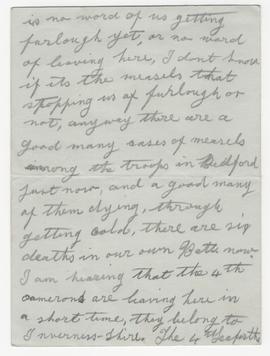 is no word of us getting
furlough yet, or no word
of leaving here, I dont know
if its the measels that
stopping us of furlough or
not, anyway there are a
good many cases of measels
among the troops in Bedford
just now, and a good many
of them dying, through
getting cold, there are six
deaths in our own Batt. now.
I am hearing that the 4th
camerons are leaving here in
a short time, they belong to
Inverness-Shire. The 4th Seaforths